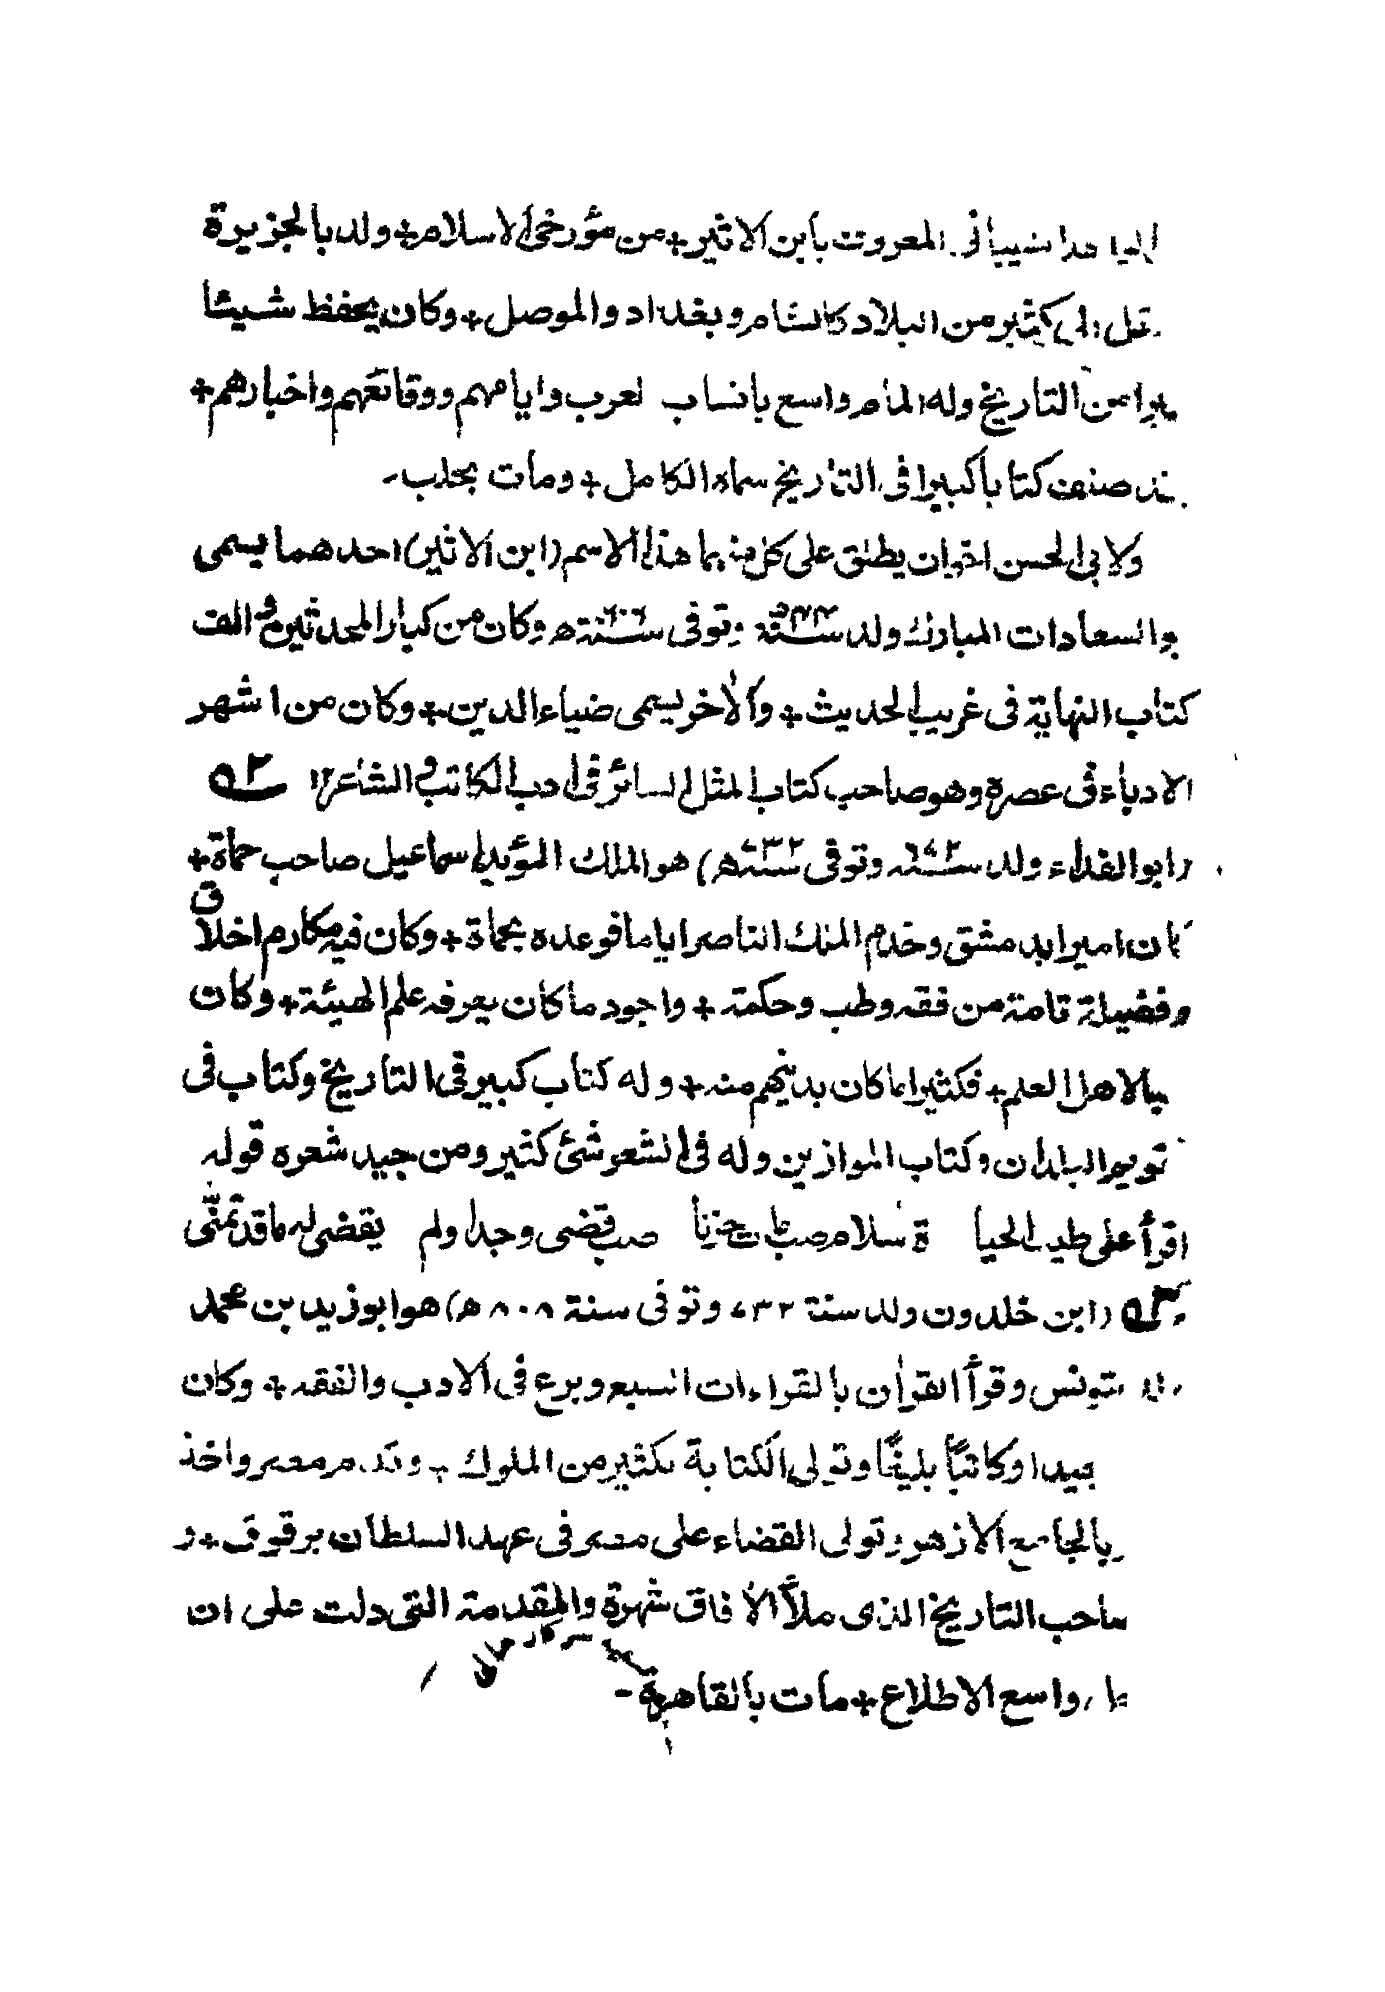 الشيبانى المعروف بابن الاثير + من مؤرخى الاسلام + ولد بالجزيرة
الى كثير من البلاد كالشام وبغداد والموصل + وكان يحفظ شيئا
من التاريخ وله المام واسع بانساب لعرب وايامهم ووقائعهم واخبارهم +
صنف كتابا كبيرا فى التاريخ سماه الكامل + ومات بحلب -
ولابى الحسن اخوان يطلق على كل منهما هذا الاسم (ابن الاثير) احدهما يسمى
بو السعادات المبارك ولد سنة ٥٤٤ وتوفى سنة ٦٠٦ ه وكان من كبار المحدثين والف
كتاب النهاية فى غريب الحديث + والاخر يسمى ضياء الدين + وكان من اشهر
الادباء فى عصره وهو صاحب كتاب المثل السائر فى ادب الكاتب والشاعر ١٢
(ابو الفداء ولد سنة ٦٧٢ وتوفى سنة ٧٣٢ ه) هو الملك المؤيد اسماعيل صاحب حماة +
كان اميرا بدمشق وخدم الملك الناصر اياما فوعده بحماة + وكان فيه مكارم اخلاق
وفضيلة تامة من فقه وطب وحكمة + واجود ما كان يعرفه علم الهيئة + وكان
لاهل العلم + فكثيرا ما كان يدنيهم منه + وله كتاب كبير فى التاريخ وكتاب فى
تقويم البلدان وكتاب الموازين وله فى الشعر شئ كثير ومن جيد شعره قوله
اقرأ على طيب الحيا ة سلام صب مات حزنا صب قضى وجدا ولم يقضى له ما قد تمنّى
(ابن خلدون ولد سنة ٧٣٢ وتوفى سنة ٨٠٨ ه) هو ابو زيد بن محمد
بتونس وقرأ القرآن بالقراءات السبع وبرع فى الادب والفقه + وكان
مجيدا وكاتبًا بليغًا وتولى الكتابة لكثير من الملوك + وقدم مصر واخذ
بالجامع الازهر وتولى القضاء على مصر فى عهد السلطان برقوق + و
صاحب التاريخ الذى ملأ الآفاق شهرة والمقدمة التى دلت على ان
واسع الاطلاع + مات بالقاهرة -